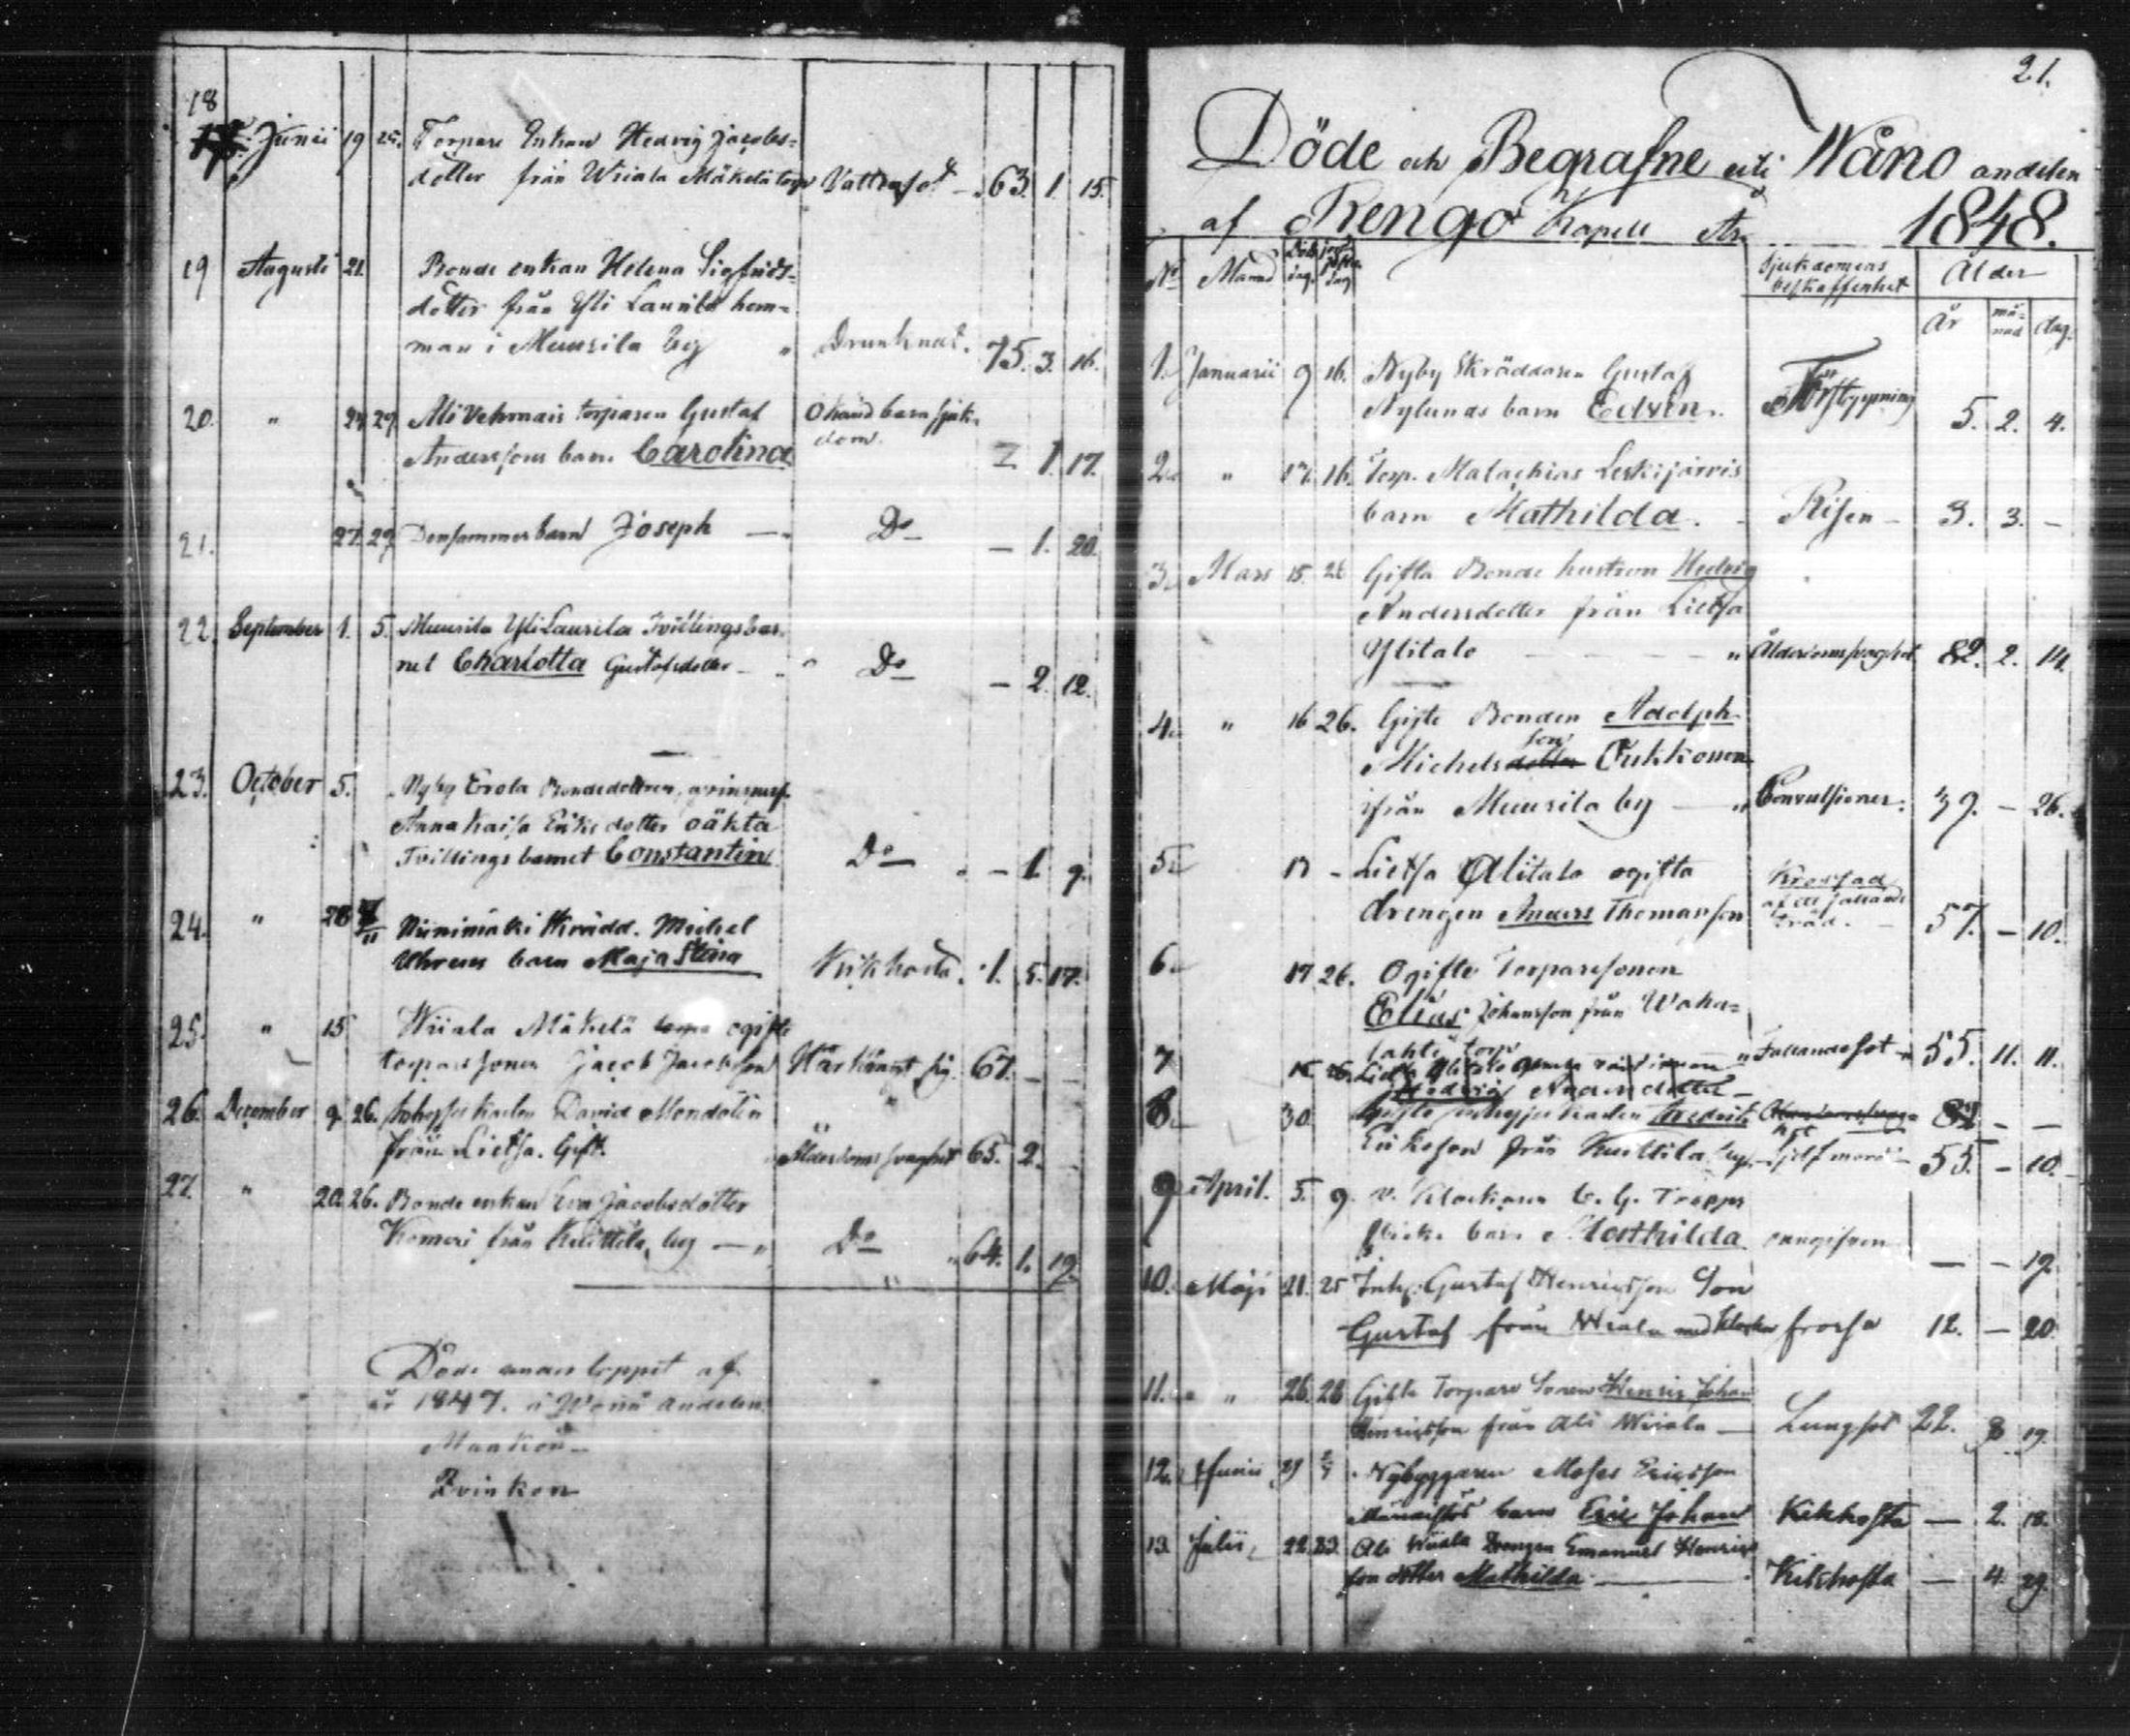 18 Junii 19 25. Torpare Enkan Hedvig Jacobs=
dotter från Wiiala Mäkelä torp Vattusot — 63. 1. 15.
19 Augusti 21. Bonde enkan Helena Sigfrids-
dotter från Yli Laurila hem-
man i Muurila by " Drunknad. 75. 3. 16.
20. " 24 29 Ali Vehmais torparen Gustaf Okänd barnsjuk-
Anderssons barn Carolina dom. 1. 17.
21. 27. 29 Densammes barn Joseph — Do — 1. 20.
22. September 1. 5. Muurila Yli Laurila Tvillingsbar-
net Charlotta Gustafsdotter — " Do — 2. 12.
23. October 5. Nyby Erola Bondedottren,
Anna Kaisa Eriksdotter oäkta
Tvillings barnet Constantin Do — 1 9.
24. " 28 Niinimäki Skrädd. Michel
barn Maja Stina Kikhosta. 1. 5. 17.
25. " 15 Wiiala Mäkelä ogifte
torpars sonen Jacob Jacobsson 67. — —
26. December 9. 26. Inhyses karlen David Mondolin
från Lietsa. Gift. Ålderdomssvaghet 65. 2. —
27. " 20. 26. Bonde enkan Eva Jacobsdotter
från Kuittila by — " Do " 64. 1. 19.
Döde under loppet af
år 1847. i Wånå andelen.
Mankön —
Qvinkön
21.
Döde och Begrafne uti Wånå andelen
af Rengo Kapell År 1848.
No Månad Sjukdomens Ålder
beskaffenhet
År må- dag.
nad
1. Januarii 9 16. Nyby Skräddaren Gustaf
Nylunds barn Edvin. Förstoppning 5. 2. 4.
2. " 16. Torp. Malachias Leskijärvis
barn Mathilda. - Risen — 3. 3. —
3. Mars 15. 26 Gifta Bonde hustrun Hedvig
Andersdotter från Lietsa
Ylitalo — — — " Ålderdomssvaghet 82. 2. 14.
4. " 16 26. Gifte Bonden Adolph
son
Michelsdotter Oukkonen
ifrån Muurila by — " Convulsioner. 39. — 26.
5. - Lietsa Alitalo ogifta Krossad
drengen Anders Thomasson af ett fallande
träd. — 57. — 10.
6. 17 26. Ogifte Torparesonen
Elias Johansson från Waha=
lahti torp " Fallandesot " 55. 11. 11.
7 26. Lietsa
Hedvig Andersdotter —
8. 30. Gifte inhyses karlen Fredrik 82 — —
Eriksson från Kuittila by — sjelfmord — 55. — 10.
9. April. 5. 9. v. Klockaren C. G. Trapps
flicke barn Mathilda — — 19.
10. Maji 21. 25 Inh. Gustaf Henricsson Son
Gustaf från Wiala frossa 12. — 20
11. " 26. 28 Gifta Torpare Sonen Henric Johan
Henricsson från Ali Wiiala — Lungsot 22. 8 19.
12. Junii 29 Nybyggaren Moses Ericsson
barn Eric Johan Kikhosta — 2. 18.
13. Julii, 22. 23. Ali Wiiala Drengen Emanuel Henrics
son dotter Mathilda — Kikhosta — 4. 29.